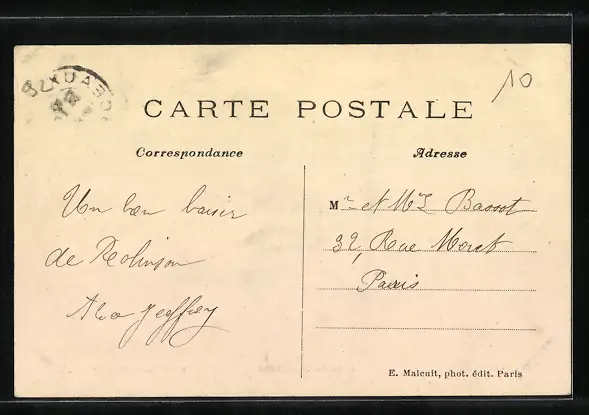 10
CARTE POSTALE
Correspondance
Adresse
Un bon baiser
de Robinson
Geoffrey
Mr et Mme Bassot
32, Rue Moret
Paris
E. Malcuit, phot. édit. Paris